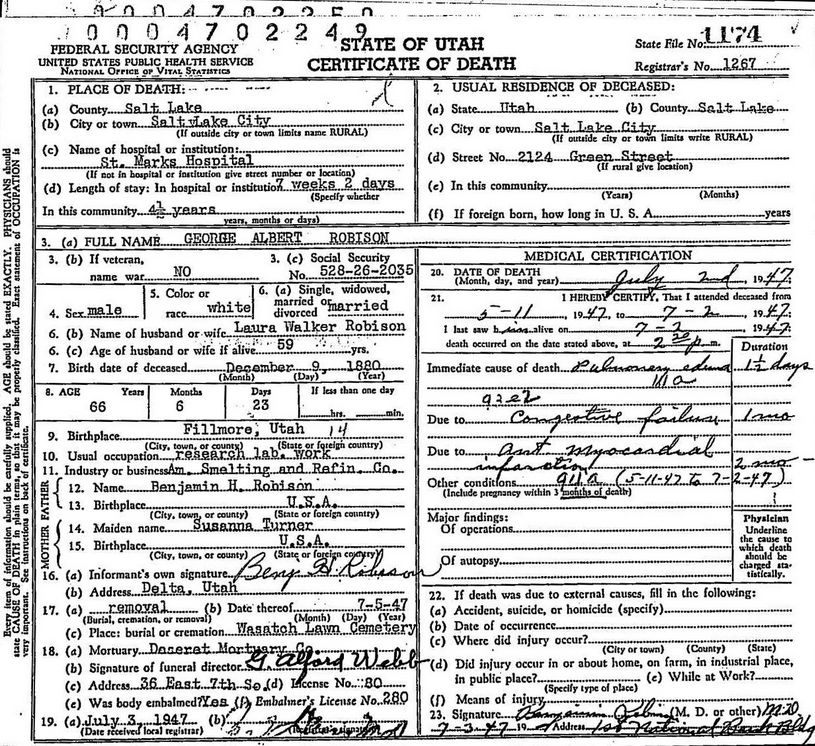 0 0 0 4 7 0 2 2 5 0
0 0 0 4 7 0 2 2 4 9
FEDERAL SECURITY AGENCY
UNITED STATES PUBLIC HEALTH SERVICE
NATIONAL OFFICE OF VITAL STATISTICS
STATE OF UTAH
CERTIFICATE OF DEATH
State File No. 1174
Registrar's No. 1267
Every item of information should be carefully supplied. AGE should be stated EXACTLY. PHYSICIANS should
state CAUSE OF DEATH in plain terms, so that it may be properly classified. Exact statement of OCCUPATION is
very important. See instructions on back of certificate.
1. PLACE OF DEATH:
(a) County Salt Lake
(b) City or town Salt Lake City
(If outside city or town limits name RURAL)
(c) Name of hospital or institution:
St. Marks Hospital
(If not in hospital or institution give street number or location)
(d) Length of stay: In hospital or institution 7 weeks 2 days
(Specify whether
In this community 4½ years
years, months or days)
2. USUAL RESIDENCE OF DECEASED:
(a) State Utah (b) County Salt Lake
(c) City or town Salt Lake City
(If outside city or town limits write RURAL)
(d) Street No. 2124 Green Street
(If rural give location)
(e) In this community
(Years) (Months)
(f) If foreign born, how long in U. S. A. years
3. (a) FULL NAME GEORGE ALBERT ROBISON
3. (b) If veteran, name war NO
3. (c) Social Security No. 528-26-2035
4. Sex male
5. Color or race white
6. (a) Single, widowed, married or divorced married
6. (b) Name of husband or wife Laura Walker Robison
6. (c) Age of husband or wife if alive 59 yrs.
7. Birth date of deceased December 9, 1880
(Month) (Day) (Year)
8. AGE Years Months Days If less than one day
66 6 23 hrs. min.
9. Birthplace Fillmore, Utah 14
(City, town, or county) (State or foreign country)
10. Usual occupation research lab. work
11. Industry or business Am. Smelting and Refin. Co.
FATHER
12. Name Benjamin H. Robison
13. Birthplace U.S.A.
(City, town, or county) (State or foreign country)
MOTHER
14. Maiden name Susanna Turner
15. Birthplace U.S.A.
(City, town, or county) (State or foreign country)
16. (a) Informant's own signature Benj H Robison
(b) Address Delta, Utah
17. (a) removal (b) Date thereof 7-5-47
(Burial, cremation, or removal) (Month) (Day) (Year)
(c) Place: burial or cremation Wasatch Lawn Cemetery
18. (a) Mortuary Deseret Mortuary Co
(b) Signature of funeral director G. Alford Webb
(c) Address 36 East 7th So. (d) License No. 80
(e) Was body embalmed? Yes (f) Embalmer's License No. 280
19. (a) July 3, 1947 (b)
(Date received local registrar) (Registrar's signature)
MEDICAL CERTIFICATION
20. DATE OF DEATH
(Month, day, and year) July 2nd, 1947
21. I HEREBY CERTIFY, That I attended deceased from
5-11, 1947, to 7-2, 1947.
I last saw him alive on 7-2 1947
death occurred on the date stated above, at 2 20 p. m.
Duration
Immediate cause of death Pulmonary edema 1½ days
111a
93e2
Due to Congestive failure 1 mo
Due to Ant myocardial
infarction 2 mo
Other conditions 94a (5-11-47 to 7-2-47)
(Include pregnancy within 3 months of death)
Major findings:
Of operations
Of autopsy
Physician
Underline
the cause to
which death
should be
charged sta-
tistically.
22. If death was due to external causes, fill in the following:
(a) Accident, suicide, or homicide (specify)
(b) Date of occurrence
(c) Where did injury occur?
(City or town) (County) (State)
(d) Did injury occur in or about home, on farm, in industrial place,
in public place? (e) While at Work?
(Specify type of place)
(f) Means of injury
23. Signature (M. D. or other) MD
7-3-47 19 Address 1st National Bank Bldg